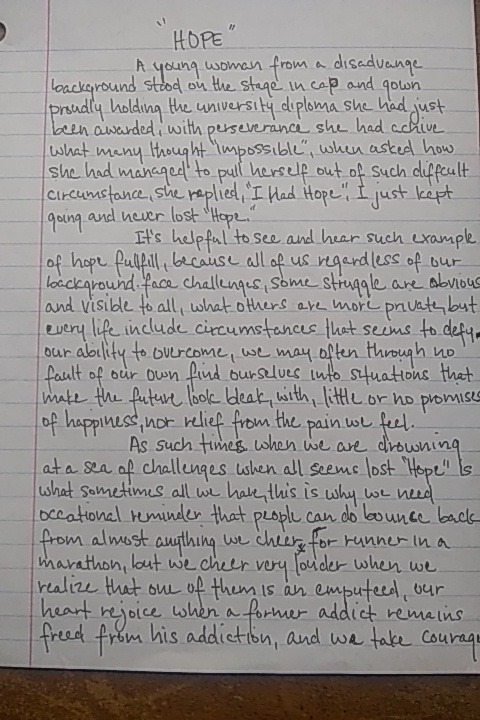 "HOPE"
A young woman from a disadvange
background stood on the stage in cap and gown
proudly holding the university diploma she had just
been awarded, with perseverance she had achive
what many thought "impossible", when asked how
she had managed to pull herself out of such diffcult
circumstance, she replied, "I Had Hope", I just kept
going and never lost "Hope."
It's helpful to see and hear such example
of hope fulfill, because all of us regardless of our
background face challenges, some struggle are obvious
and visible to all, what others are more private, but
every life include circumstances that seems to defy
our ability to overcome, we may often through no
fault of our own find ourselves into situations that
make the future look bleak, with, little or no promises
of happiness, nor relief from the pain we feel.
As such times when we are drowning
at a sea of challenges when all seems lost "Hope" is
what sometimes all we have, this is why we need
occational reminder that people can do bounce back
from almost anything we cheer for runner in a
marathon, but we cheer very louder when we
realize that one of them is an emputeed, our
heart rejoice when a former addict remains
freed from his addiction, and we take courage